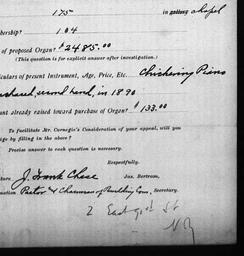 175 in chapel
bership? 104
of proposed Organ? $2485.00
(This question is for explicit answer after investigation.)
iculars of present Instrument, Age, Price, Etc. Chickering Piano
second hand, in 1890
unt already raised toward purchase of Organ? $133.00
To facilitate Mr. Carnegie's Consideration of your appeal, will you
ge by filling in the above?
Precise answer to each question is necessary.
Respectfully,
ature J. Frank Chase Jas. Bertram,
nation Pastor & Chairman of Building Com, Secretary.
2 East 91st St
N.Y